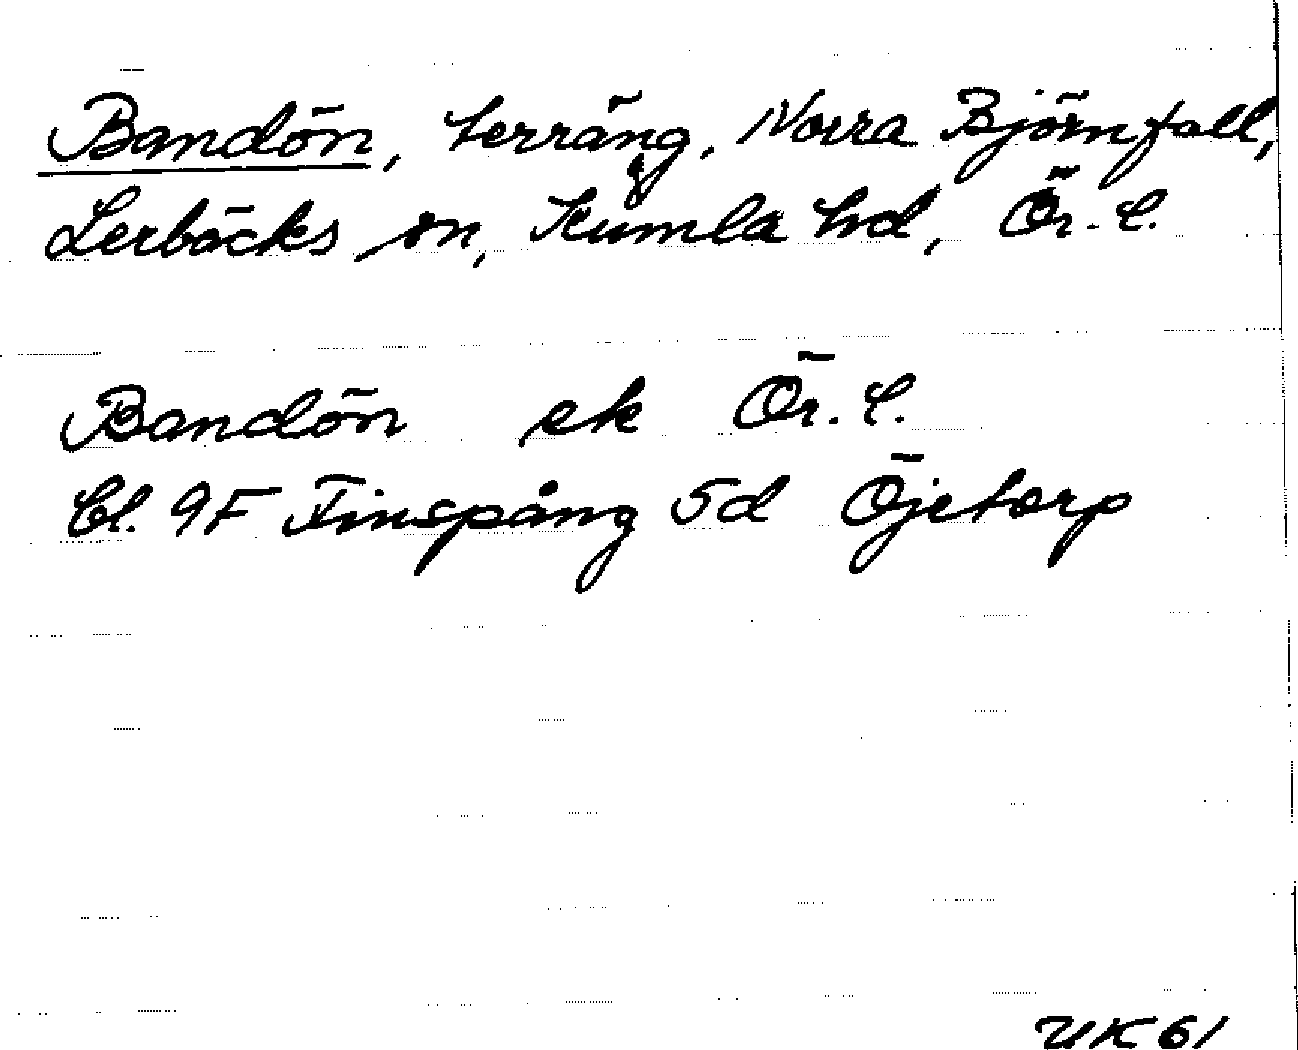 Bandön, terräng, Norra Björnfall,
Lerbäcks sn, Kumla hd, Ör. l.
Bandön ek Ör. l.
Bl. 9F Finspång 5d Öjetorp
UK61